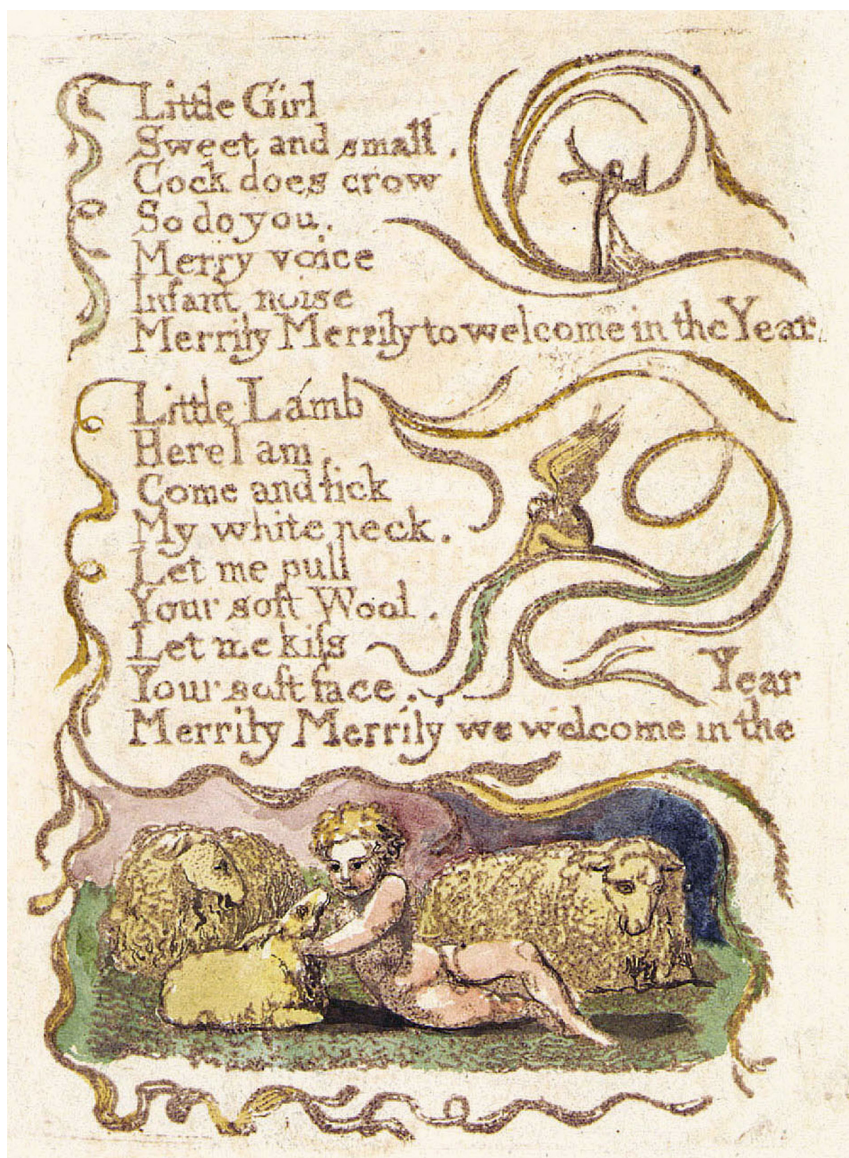 Little Girl
Sweet and small.
Cock does crow
So do you.
Merry voice
Infant noise
Merrily Merrily to welcome in the Year.
Little Lamb
Here I am.
Come and lick
My white neck.
Let me pull
Your soft Wool.
Let me kiſs
Your soft face.
Merrily Merrily we welcome in the Year